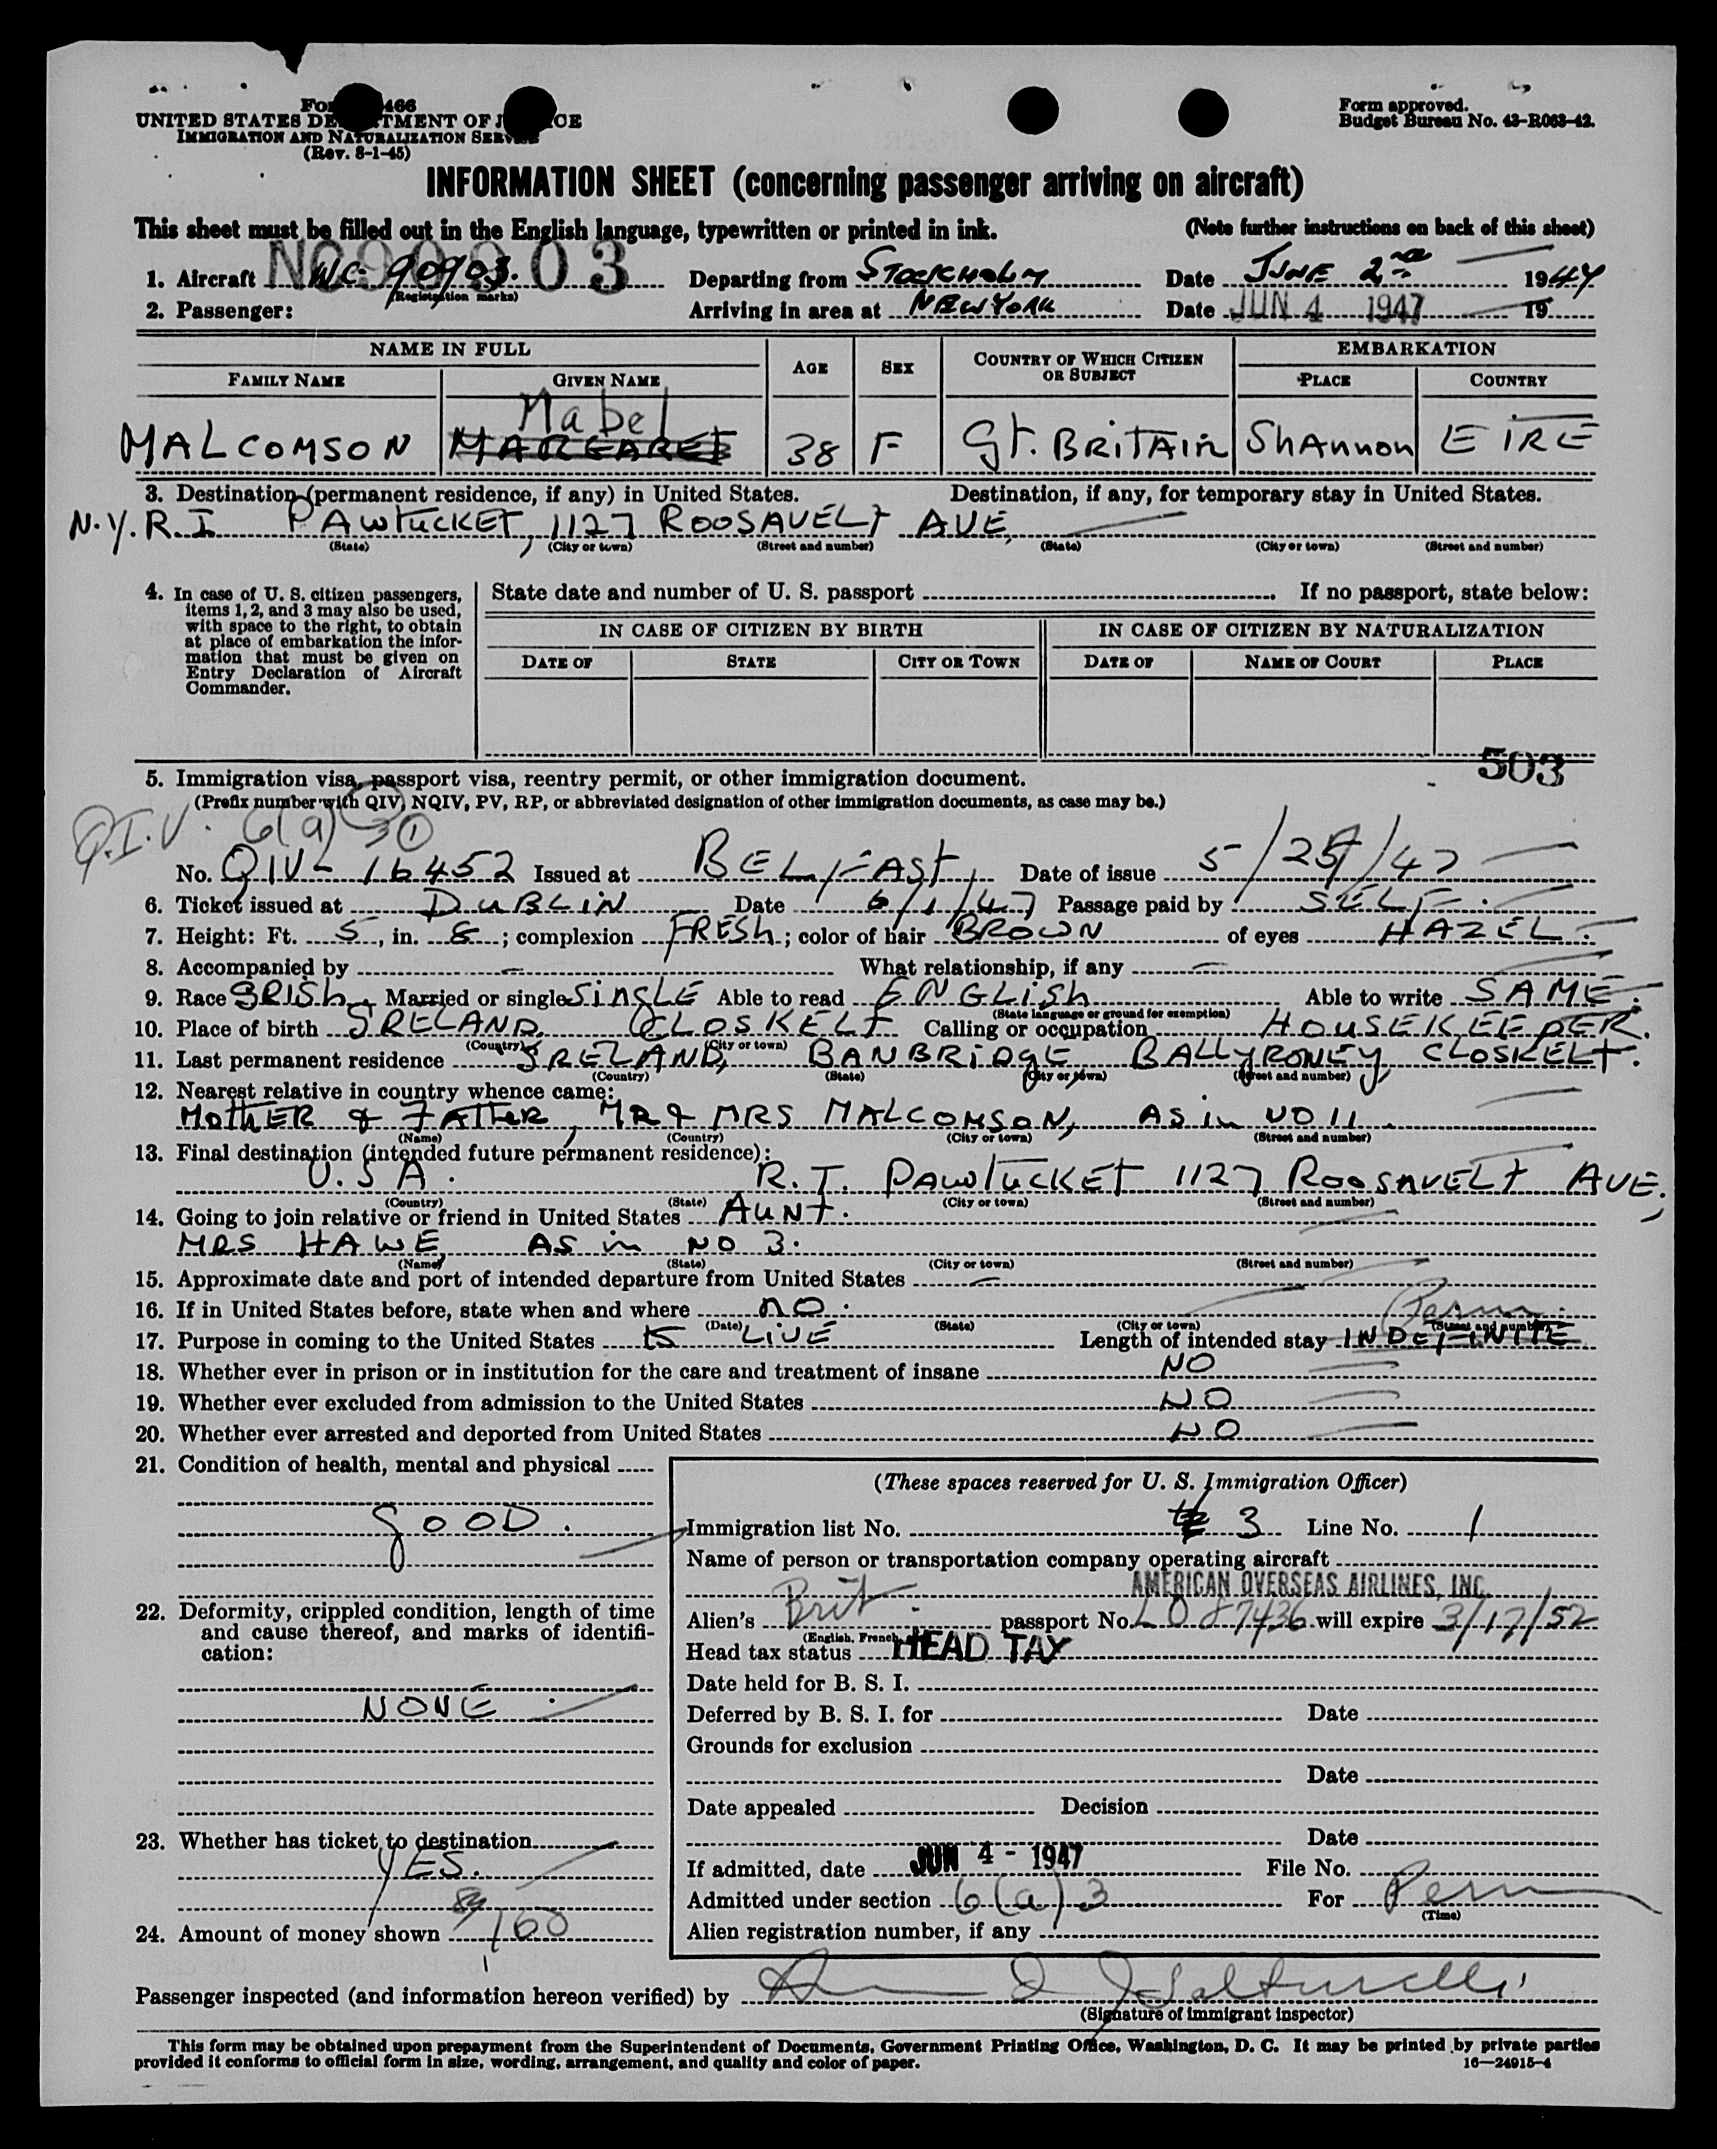 UNITED STATES DEPARTMENT OF JUSTICE
IMMIGRATION AND NATURALIZATION SERVICE
(Rev. 8-1-45)
Form approved.
Budget Bureau No. 43-R063-42.
INFORMATION SHEET (concerning passenger arriving on aircraft)
This sheet must be filled out in the English language, typewritten or printed in ink. (Note further instructions on back of this sheet)
1. Aircraft NC 90903. (Registration marks) Departing from STOCKHOLM Date JUNE 2nd 1947
2. Passenger: Arriving in area at NEW YORK Date JUN 4 1947 19
NAME IN FULL AGE SEX COUNTRY OF WHICH CITIZEN OR SUBJECT EMBARKATION
FAMILY NAME GIVEN NAME PLACE COUNTRY
Mabel
MALCOMSON MARGARET 38 F Gt. BRITAIN SHANNON EIRE
3. Destination (permanent residence, if any) in United States. Destination, if any, for temporary stay in United States.
N.Y. R.I. PAWTUCKET, 1127 ROOSAVELT AVE,
(State) (City or town) (Street and number) (State) (City or town) (Street and number)
4. In case of U. S. citizen passengers, items 1, 2, and 3 may also be used, with space to the right, to obtain at place of embarkation the information that must be given on Entry Declaration of Aircraft Commander.
State date and number of U. S. passport If no passport, state below:
IN CASE OF CITIZEN BY BIRTH IN CASE OF CITIZEN BY NATURALIZATION
DATE OF STATE CITY OR TOWN DATE OF NAME OF COURT PLACE
503
5. Immigration visa, passport visa, reentry permit, or other immigration document.
(Prefix number with QIV, NQIV, PV, RP, or abbreviated designation of other immigration documents, as case may be.)
Q.I.V. 6(a) 3 1
No. QIV- 16452 Issued at BELFAST Date of issue 5/29/47
6. Ticket issued at DUBLIN Date 6/1/47 Passage paid by SELF.
7. Height: Ft. 5, in. 8; complexion FRESH; color of hair BROWN of eyes HAZEL.
8. Accompanied by – What relationship, if any –
9. Race IRISH Married or single SINGLE Able to read ENGLISH Able to write SAME.
(State language or ground for exemption)
10. Place of birth IRELAND CLOSKELT Calling or occupation HOUSEKEEPER.
(Country) (City or town)
11. Last permanent residence IRELAND, BANBRIDGE, BALLYRONEY, CLOSKELT.
(Country) (State) (City or town) (Street and number)
12. Nearest relative in country whence came:
MOTHER & FATHER, MR & MRS MALCOMSON, AS in NO 11.
(Name) (Country) (City or town) (Street and number)
13. Final destination (intended future permanent residence):
U.S A. R.I. PAWTUCKET 1127 ROOSAVELT AVE,
(Country) (State) (City or town) (Street and number)
14. Going to join relative or friend in United States AUNT.
MRS HAWE, AS in NO 3.
(Name) (State) (City or town) (Street and number)
15. Approximate date and port of intended departure from United States –
16. If in United States before, state when and where NO.
(Date) (State) (City or town) (Street and number)
Perm.
17. Purpose in coming to the United States to LIVE Length of intended stay INDEFINITE
18. Whether ever in prison or in institution for the care and treatment of insane NO
19. Whether ever excluded from admission to the United States NO
20. Whether ever arrested and deported from United States NO
21. Condition of health, mental and physical
GOOD.
22. Deformity, crippled condition, length of time and cause thereof, and marks of identification:
NONE.
23. Whether has ticket to destination
YES.
24. Amount of money shown 160
(These spaces reserved for U. S. Immigration Officer)
Immigration list No. 3 Line No. 1
Name of person or transportation company operating aircraft
AMERICAN OVERSEAS AIRLINES, INC.
Alien's Brit. passport No. LO 87436 will expire 3/17/52
(English, French
Head tax status HEAD TAX
Date held for B. S. I.
Deferred by B. S. I. for Date
Grounds for exclusion
Date
Date appealed Decision
Date
If admitted, date JUN 4 - 1947 File No.
Admitted under section 6(a)3 For Perm
(Time)
Alien registration number, if any
Passenger inspected (and information hereon verified) by
(Signature of immigrant inspector)
This form may be obtained upon prepayment from the Superintendent of Documents, Government Printing Office, Washington, D. C. It may be printed by private parties
provided it conforms to official form in size, wording, arrangement, and quality and color of paper. 16—24915-4